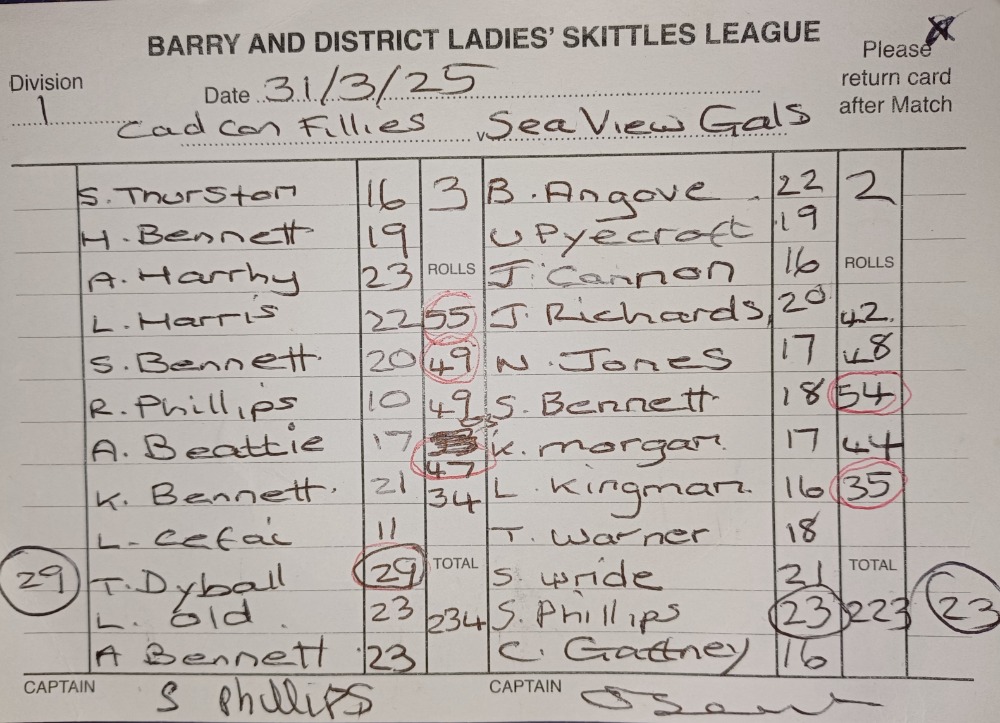 BARRY AND DISTRICT LADIES' SKITTLES LEAGUE
Please return card after Match
Division 1
Date 31/3/25
Cadcon Fillies v Sea View Gals
S. Thurston 16 3 B. Angove 22 2
H. Bennett 19 U Pyecroft 19
A. Harrhy 23 ROLLS J. Cannon 16 ROLLS
L. Harris 22 55 J. Richards, 20 42.
S. Bennett. 20 49 N. Jones 17 48
R. Phillips 10 49 S. Bennett 18 54
A. Beattie 17 47 K. Morgan. 17 44
K. Bennett. 21 34 L. Kingman. 16 35
L. Cefai 11 T. Warner 18
29 T. Dyball 29 TOTAL S. Wride 21 TOTAL
L. Old. 23 234 S. Phillips 23 223 23
A Bennett 23 C. Gaffney 16
CAPTAIN S Phillips CAPTAIN